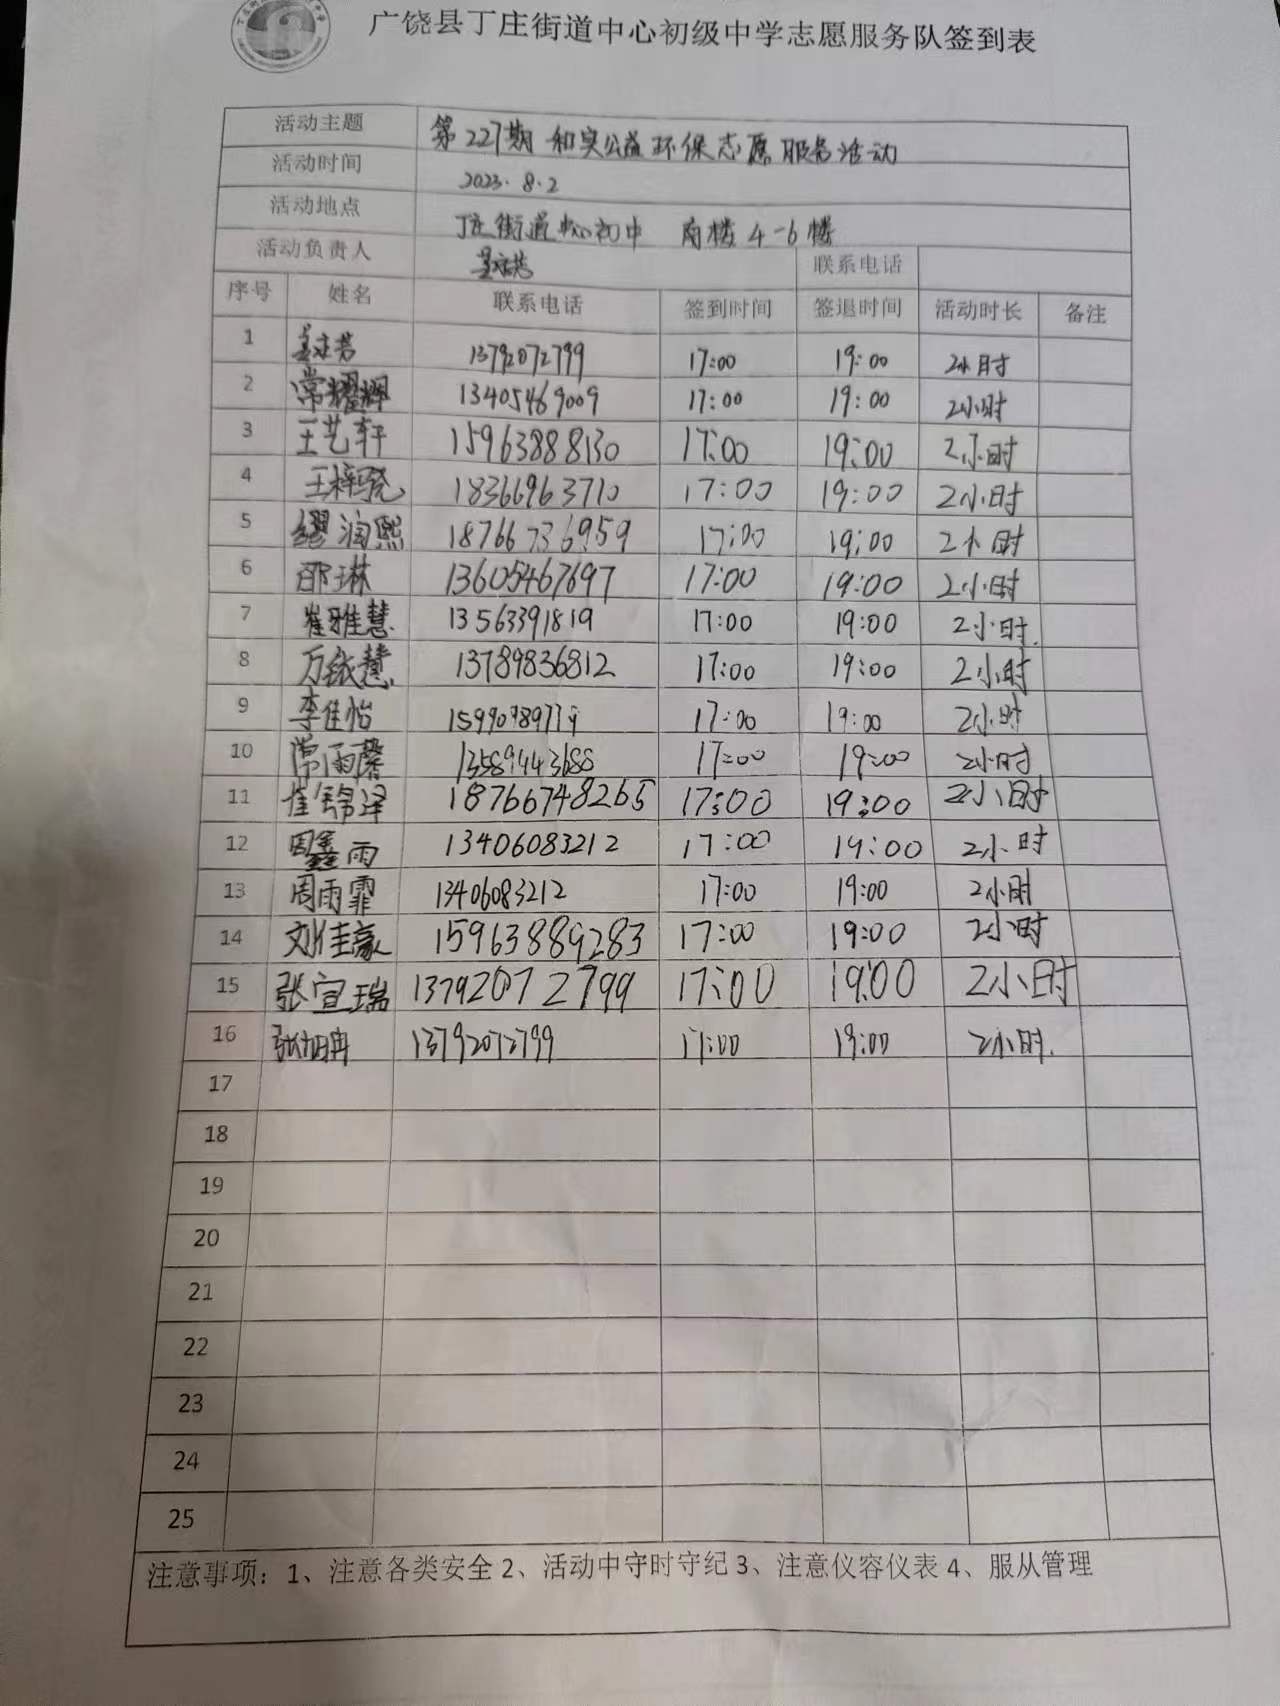 广饶县丁庄街道中心初级中学志愿服务队签到表
活动主题 第227期和实公益环保志愿服务活动
活动时间 2023.8.2
活动地点 丁庄街道中心初中 南楼4-6楼
活动负责人 联系电话
序号 姓名 联系电话 签到时间 签退时间 活动时长 备注
1 13792072799 17:00 19:00 2小时
2 常耀辉 13405469009 17:00 19:00 2小时
3 王艺轩 15963888130 17:00 19:00 2小时
4 王梓骁 18366963710 17:00 19:00 2小时
5 缪润熙 18766736959 17:00 19:00 2小时
6 邵琳 13605467697 17:00 19:00 2小时
7 崔雅慧 13563391819 17:00 19:00 2小时.
8 万铱慧 13789836812 17:00 19:00 2小时
9 李佳怡 17:00 19:00 2小时
10 常雨馨 13589443688 17:00 19:00 2小时
11 崔锦泽 18766748265 17:00 19:00 2小时
12 周鑫雨 13406083212 17:00 19:00 2小时
13 周雨霏 13406083212 17:00 19:00 2小时
14 刘佳豪 15963889283 17:00 19:00 2小时
15 张宣瑞 13792072799 17:00 19:00 2小时
16 张旭冉 13792072799 17:00 19:00 2小时.
17
18
19
20
21
22
23
24
25
注意事项：1、注意各类安全2、活动中守时守纪3、注意仪容仪表4、服从管理